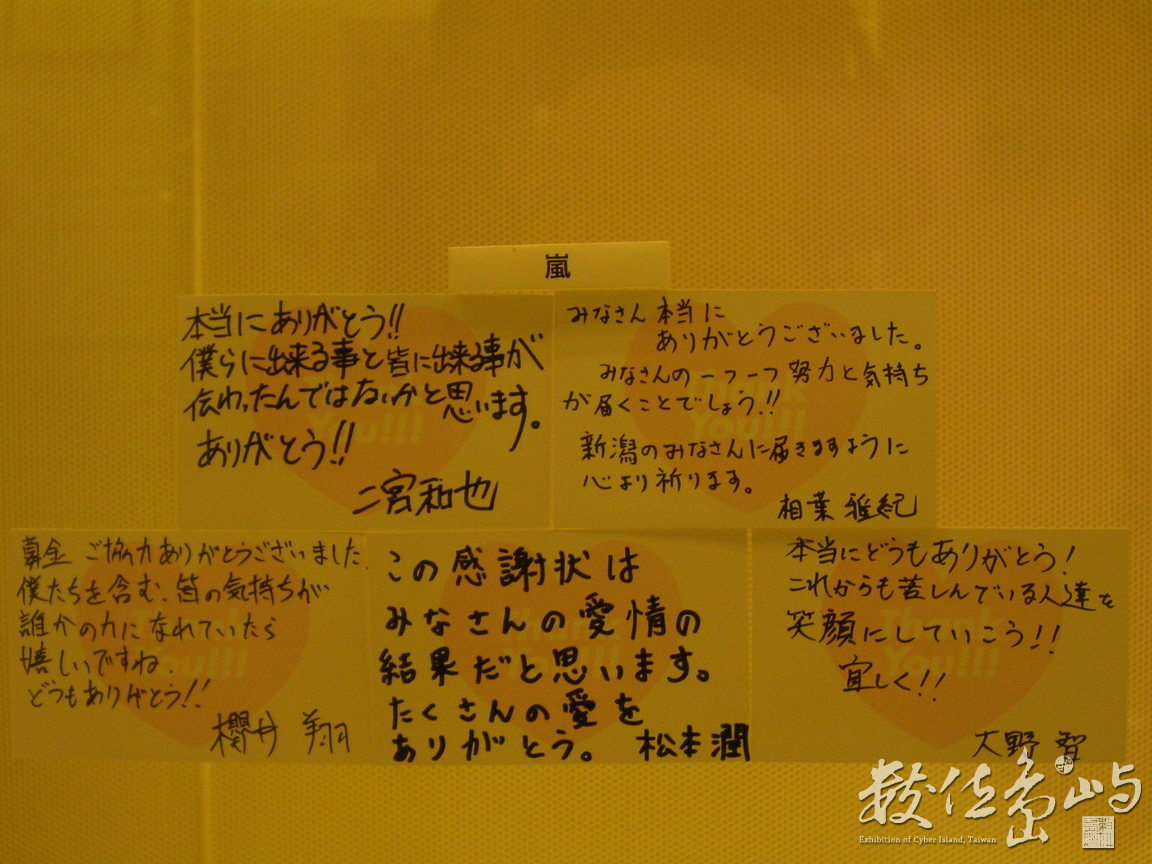 嵐
本当にありがとう!!
僕らに出来る事と皆に出来る事が
伝わったんではないかと思います。
ありがとう!!
二宮和也
みなさん 本当に
ありがとうございました。
みなさんの一つ一つ努力と気持ち
が届くことでしょう!!
新潟のみなさんに届きますように
心より祈ります。
相葉雅紀
募金 ご協力ありがとうございました。
僕たちを含む、皆の気持ちが
誰かの力になれていたら
嬉しいですね。
どうもありがとう!!
櫻井 翔
この感謝状は
みなさんの愛情の
結果だと思います。
たくさんの愛を
ありがとう。 松本潤
本当にどうもありがとう!
これからも苦しんでいる人達を
笑顔にしていこう!!
宜しく!!
大野 智
Thank
You!!!
Thank
You!!!
Thank
You!!!
Thank
You!!!
數位島嶼
Exhibition of Cyber Island, Taiwan